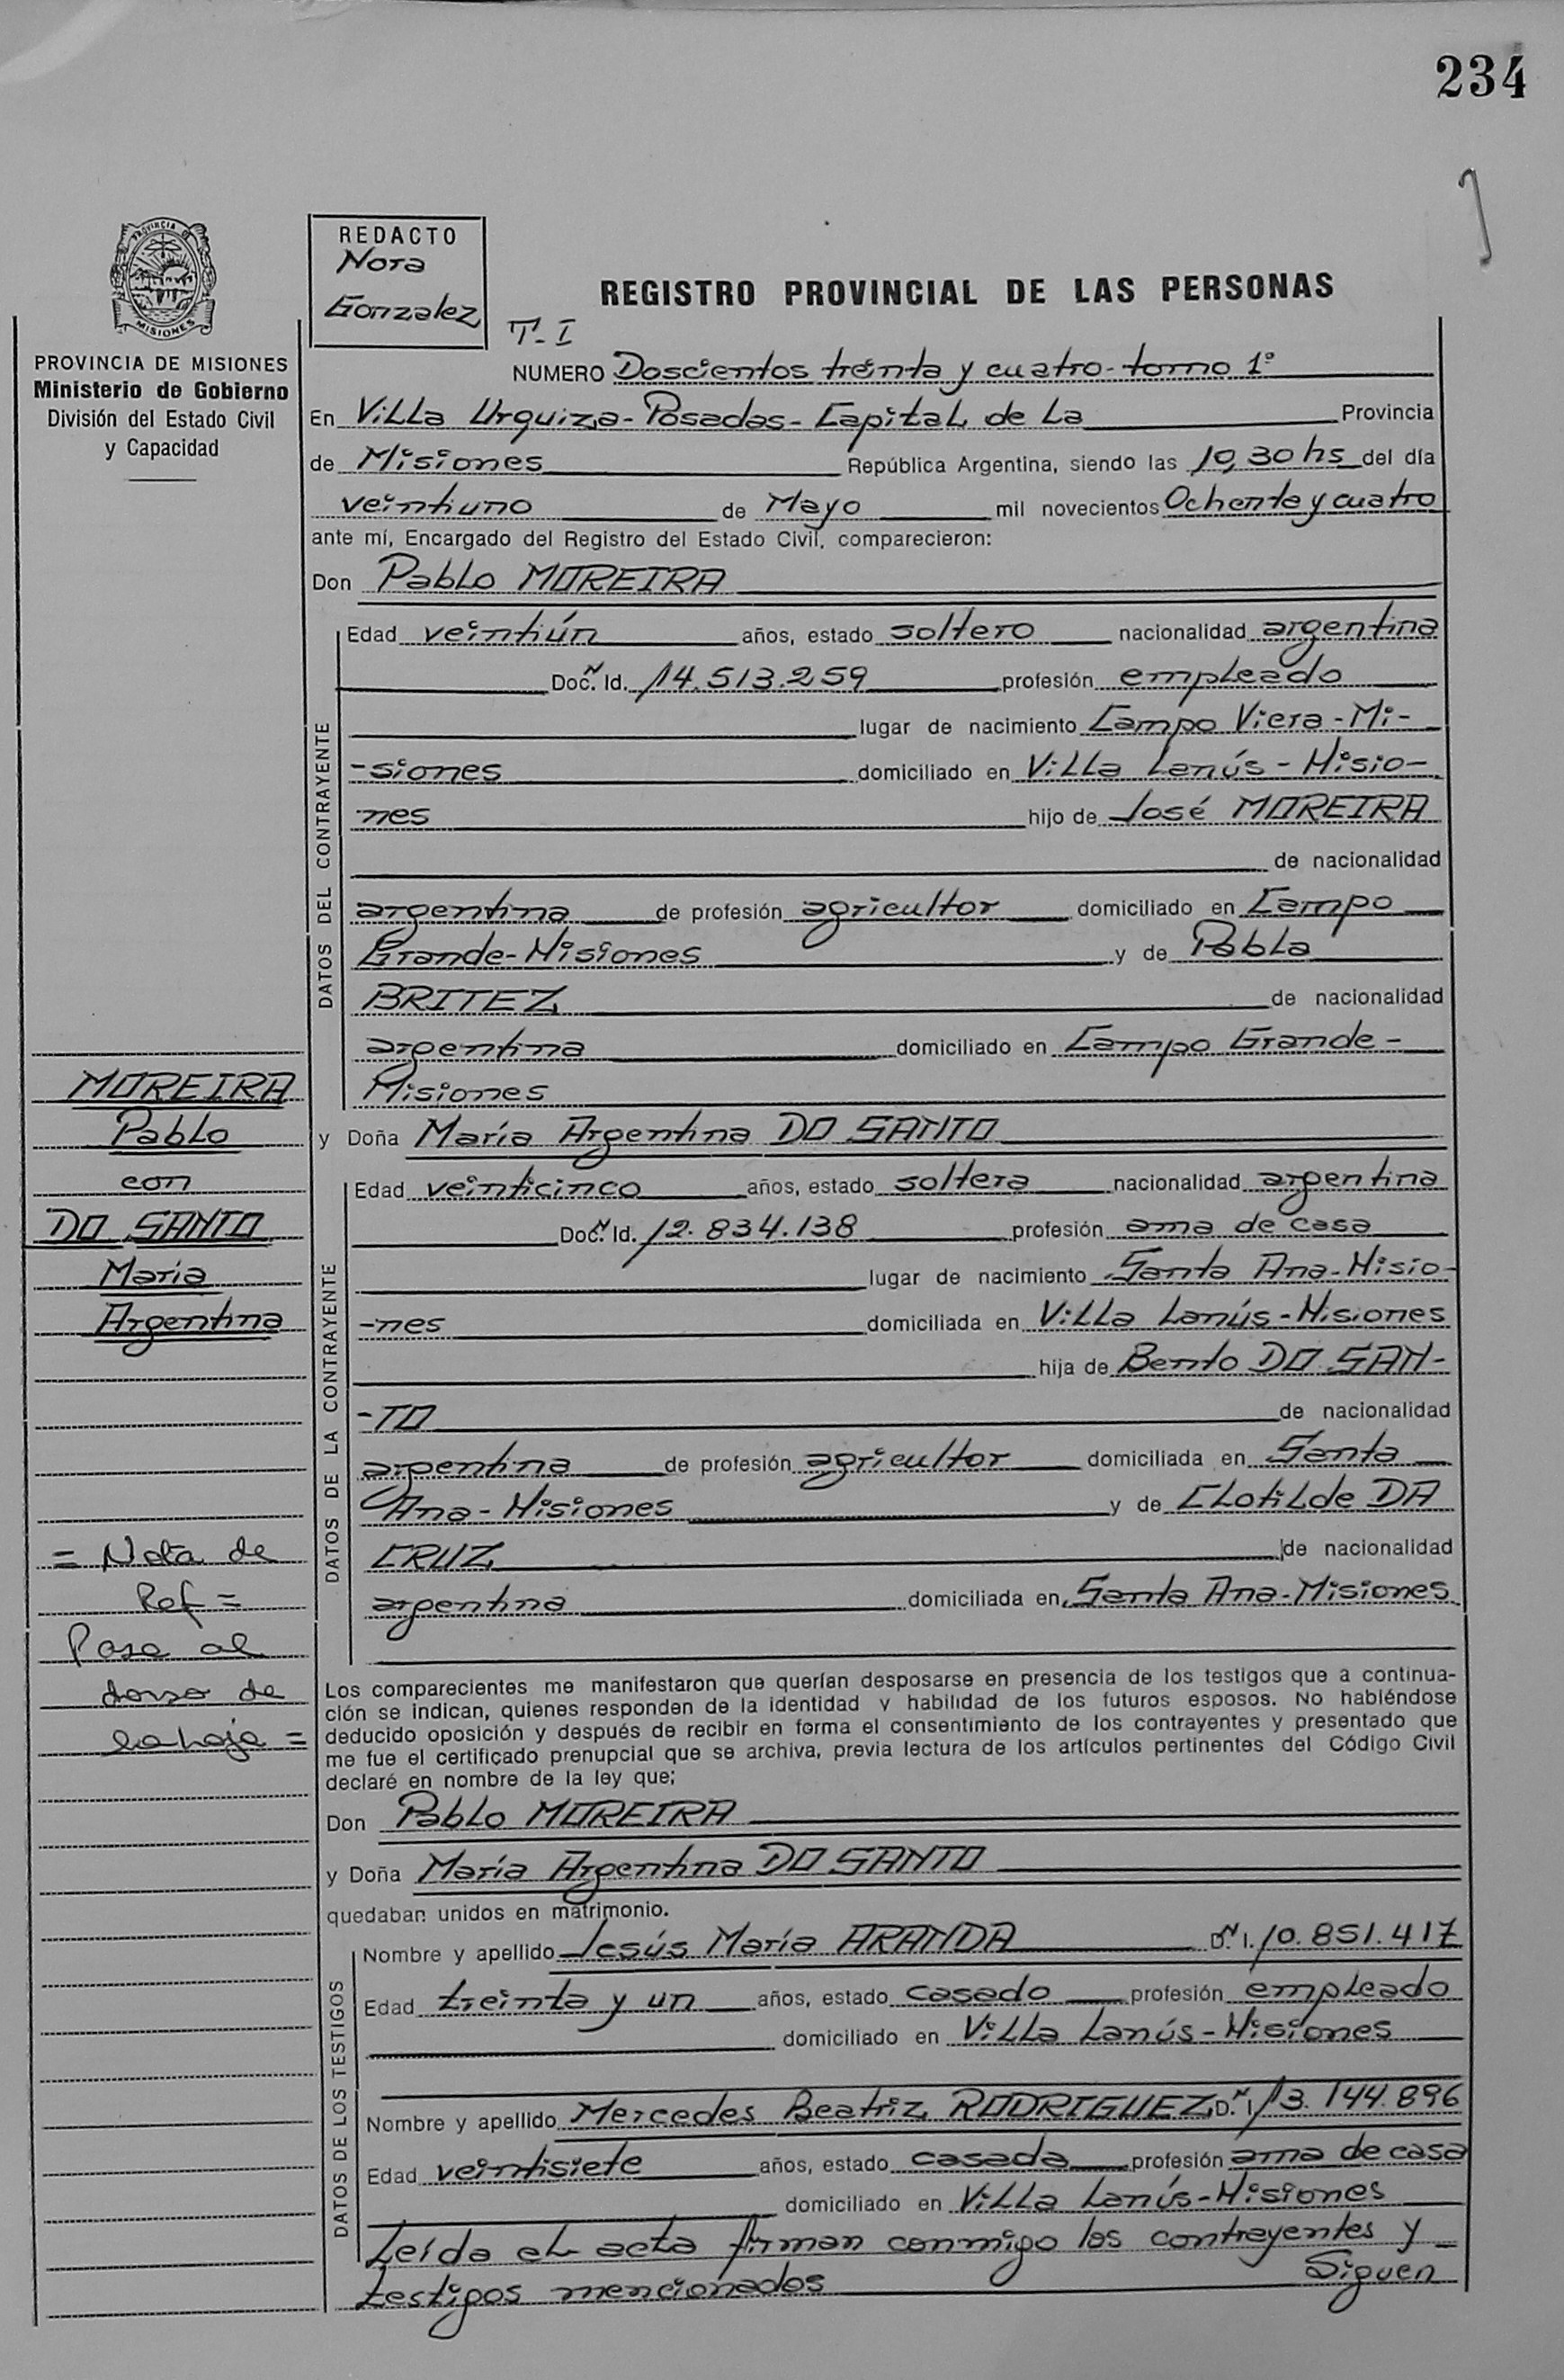 234
PROVINCIA DE
MISIONES
PROVINCIA DE MISIONES
Ministerio de Gobierno
División del Estado Civil
y Capacidad
REDACTO
Nora
Gonzalez
T-I
REGISTRO PROVINCIAL DE LAS PERSONAS
NUMERO Doscientos treinta y cuatro-tomo 1º
En Villa Urquiza-Posadas-Capital de La Provincia
de Misiones República Argentina, siendo las 10,30 hs del día
veintiuno de Mayo mil novecientos Ochenta y cuatro
ante mí, Encargado del Registro del Estado Civil, comparecieron:
Don Pablo MOREIRA
DATOS DEL CONTRAYENTE
Edad veintiún años, estado soltero nacionalidad argentina
Doc. N Id. 14.513.259 profesión empleado
lugar de nacimiento Campo Viera-Mi-
-siones domiciliado en Villa Lanús-Misio-
nes hijo de José MOREIRA
de nacionalidad
argentina de profesión agricultor domiciliado en Campo
Grande-Misiones y de Pabla
BRITEZ de nacionalidad
argentina domiciliado en Campo Grande-
Misiones
y Doña María Argentina DO SANTO
DATOS DE LA CONTRAYENTE
Edad veinticinco años, estado soltera nacionalidad argentina
Doc. N Id. 12.834.138 profesión ama de casa
lugar de nacimiento Santa Ana-Misio-
-nes domiciliada en Villa Lanús-Misiones
hija de Bento DO SAN-
-TO de nacionalidad
argentina de profesión agricultor domiciliada en Santa
Ana-Misiones y de Clotilde DA
CRUZ de nacionalidad
argentina domiciliada en Santa Ana-Misiones
MOREIRA
Pablo
con
DO SANTO
María
Argentina
= Nota de
Ref =
Pasa al
dorso de
la hoja =
Los comparecientes me manifestaron que querían desposarse en presencia de los testigos que a continua-
ción se indican, quienes responden de la identidad y habilidad de los futuros esposos. No habiéndose
deducido oposición y después de recibir en forma el consentimiento de los contrayentes y presentado que
me fue el certificado prenupcial que se archiva, previa lectura de los artículos pertinentes del Código Civil
declaré en nombre de la ley que;
Don Pablo MOREIRA
y Doña María Argentina DO SANTO
quedaban unidos en matrimonio.
DATOS DE LOS TESTIGOS
Nombre y apellido Jesús María ARANDA D.N.I. 10.851.417
Edad treinta y un años, estado casado profesión empleado
domiciliado en Villa Lanús-Misiones
Nombre y apellido Mercedes Beatriz RODRIGUEZ D.N.I. 13.144.896
Edad veintisiete años, estado casada profesión ama de casa
domiciliado en Villa Lanús-Misiones
Leída el acta firman conmigo los contrayentes y
testigos mencionados Siguen